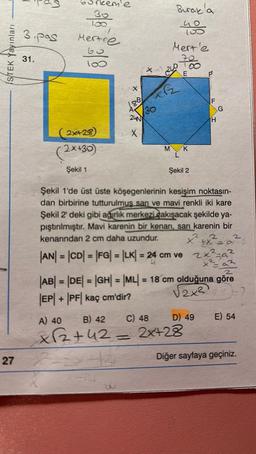 3.pas
30
100
Mert'e
60
100
Burak'a
40
100
Mert'e
70
100
İSTEK Yayınları
31.
(2x+28)
(2x+30)
Şekil 1
x
C D E P
x√2
x
B
A 30
24 N
x
F
G
H
M K
L
Şekil 2
Şekil 1'de üst üste köşegenlerinin kesişim noktasın-
dan birbirine tutturulmuş sarı ve mavi renkli iki kare
Şekil 2' deki gibi ağırlık merkezi çakışacak şekilde ya-
pıştırılmıştır. Mavi karenin bir kenarı, sarı karenin bir
kenarından 2 cm daha uzundur.
|AN| = |CD| = |FG| = |LK| = 24 cm ve
2x²=a²
|AB| = |DE| = |GH| = |ML| = 18 cm olduğuna göre
|EP| + |PF| kaç cm'dir?
√2x²
A) 40 B) 42 C) 48 D) 49 E) 54
x√2+42 = 2x+28
27
Diğer sayfaya geçiniz.